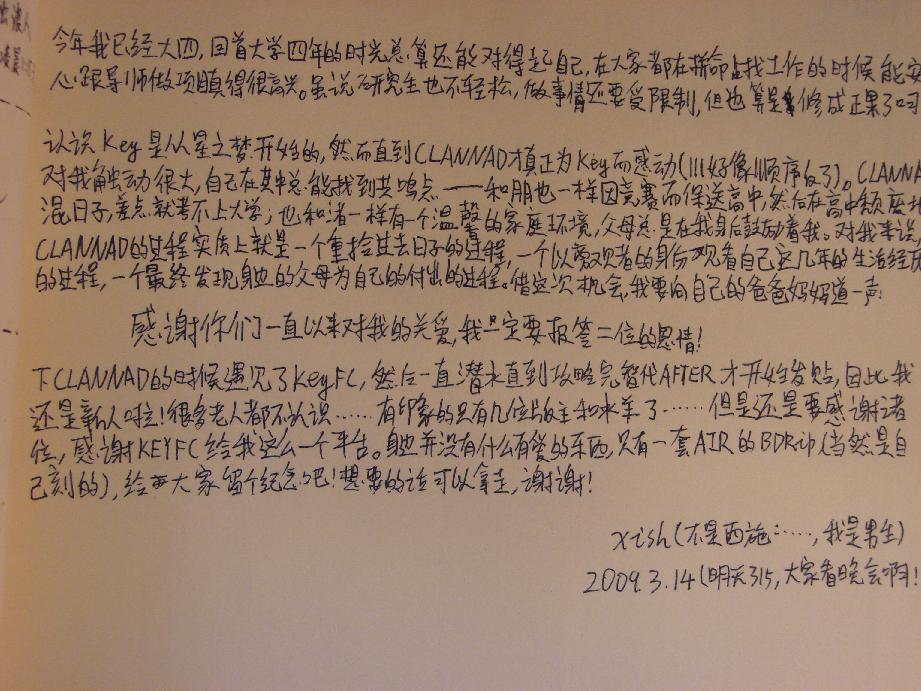 出浪人
今年我已经大四,回首大学四年的时光总算还能对得起自己,在大家都在拼命占找工作的时候能安
心跟导师做项目真得很高兴。虽说研究生也不轻松,做事情还要受限制,但也算是修成正果了吧
认识Key是从星之梦开始的,然而直到CLANNAD才真正为Key而感动(|||好像顺序反了)。CLANNA
对我触动很大,自己在其中总能找到共鸣点——和朋也一样因竞赛而保送高中,然后在高中颓废地
混日子,差点就考不上大学;也和渚一样有一个温馨的家庭环境,父母总是在我身后鼓励着我。对我来说,
CLANNAD的过程实质上就是一个重拾过去日子的过程,一个以旁观者的身份观看自己这几年的生活经历
的过程,一个最终发现身边的父母为自己的付出的过程。借这次机会,我要向自己的爸爸妈妈道一声:
感谢你们一直以来对我的关爱,我一定要报答二位的恩情!
下CLANNAD的时候遇见了KeyFC,然后一直潜水直到攻略完智代AFTER才开始发贴,因此我
还是新人啦!很多老人都不认识……有印象的只有几位版主和水羊了……但是还是要感谢诸
位,感谢KEYFC给我这么一个平台。身边并没有什么有爱的东西,只有一套AIR的BDRip(当然是自
己刻的),给大家留个纪念吧!想要的话可以拿走,谢谢!
xish(不是西施……,我是男生)
2009.3.14(明天315,大家看晚会啊!